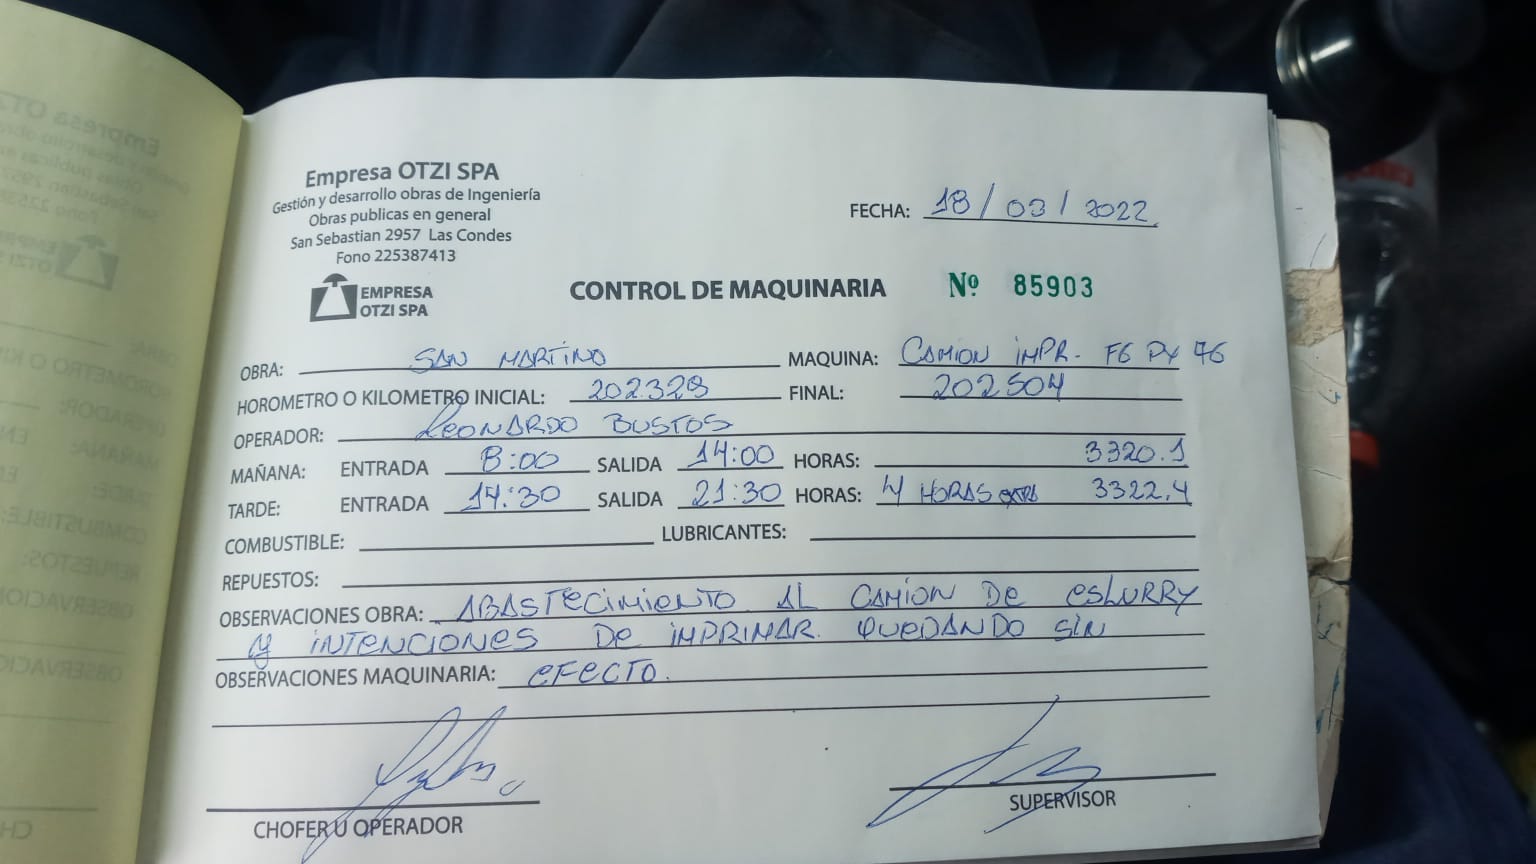 Empresa OTZI SPA
Gestión y desarrollo obras de Ingeniería
Obras publicas en general
San Sebastian 2957 Las Condes
Fono 225387413
EMPRESA
OTZI SPA
FECHA: 18 / 03 / 2022
CONTROL DE MAQUINARIA Nº 85903
OBRA: SAN MARTINO MAQUINA: CAMION IMPR. FG PY 76
HOROMETRO O KILOMETRO INICIAL: 202329 FINAL: 202504
OPERADOR: LEONARDO BUSTOS
MAÑANA: ENTRADA 8:00 SALIDA 14:00 HORAS: 3320.1
TARDE: ENTRADA 14:30 SALIDA 21:30 HORAS: 4 HORAS EXTRAS 3322,4
COMBUSTIBLE: LUBRICANTES:
REPUESTOS:
OBSERVACIONES OBRA: ABASTECIMIENTO AL CAMION DE ESLURRY
Y INTENCIONES DE IMPRIMAR. QUEDANDO SIN
OBSERVACIONES MAQUINARIA: EFECTO.
CHOFER U OPERADOR
SUPERVISOR